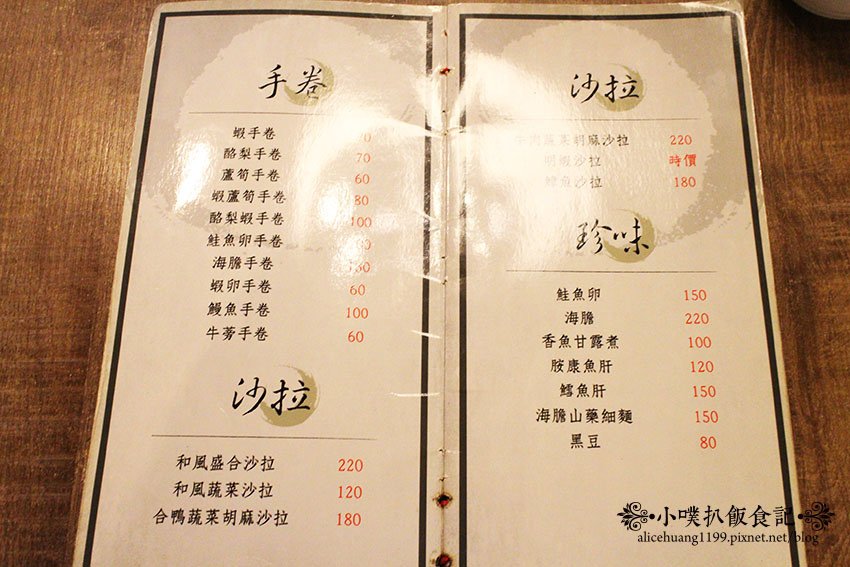 手卷
蝦手卷
酪梨手卷 70
蘆筍手卷 60
蝦蘆筍手卷 80
酪梨蝦手卷 100
鮭魚卵手卷
海膽手卷
蝦卵手卷 60
鰻魚手卷 100
牛蒡手卷 60
沙拉
和風盛合沙拉 220
和風蔬菜沙拉 120
合鴨蔬菜胡麻沙拉 180
沙拉
蔬菜胡麻沙拉 220
明蝦沙拉 時價
鱈魚沙拉 180
珍味
鮭魚卵 150
海膽 220
香魚甘露煮 100
胺康魚肝 120
鱈魚肝 150
海膽山藥細麵 150
黑豆 80
小噗扒飯食記
alicehuang1199.pixnet.net/blog